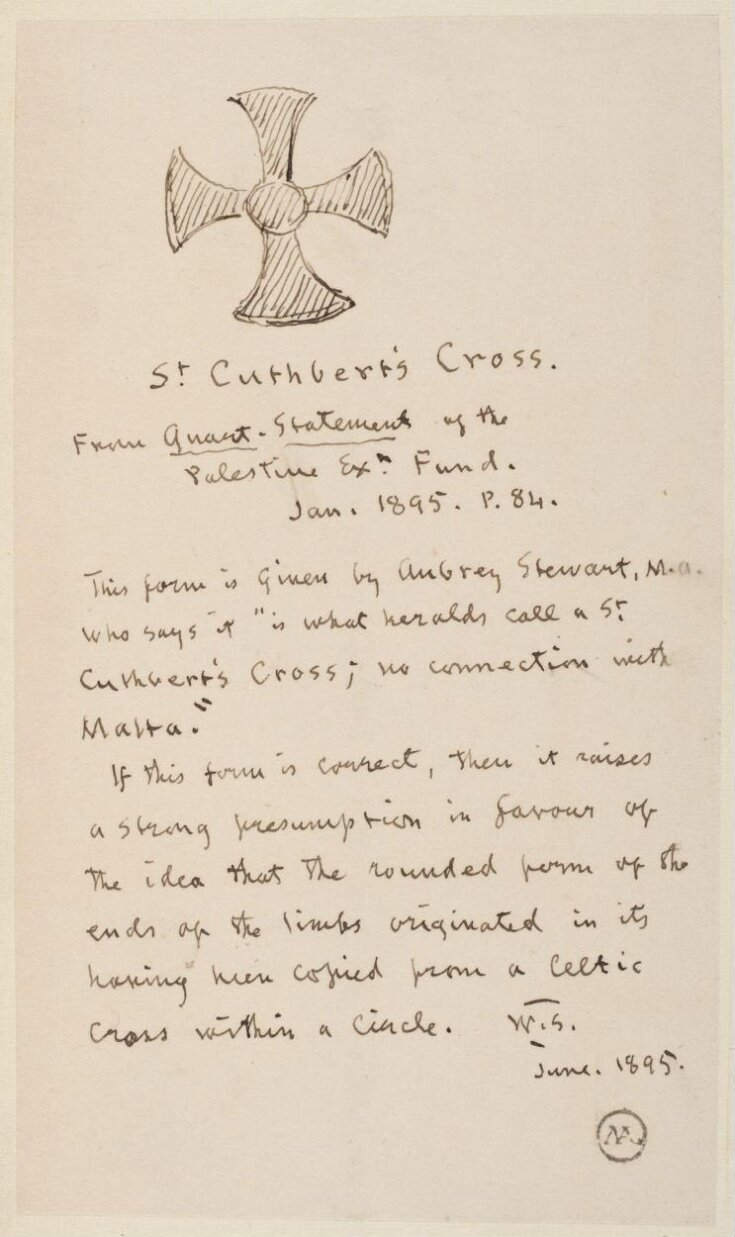 St Cuthbert's Cross.
From Quart. Statement of the
Palestine Exn Fund.
Jan. 1895. P. 84.
This form is given by Aubrey Stewart, M.A.
who says it "is what heralds call a St.
Cuthbert's Cross; no connection with
Malta."
If this form is correct, then it raises
a strong presumption in favour of
the idea that the rounded form of the
ends of the limbs originated in its
having been copied from a Celtic
Cross within a Circle. W.S.
June. 1895.